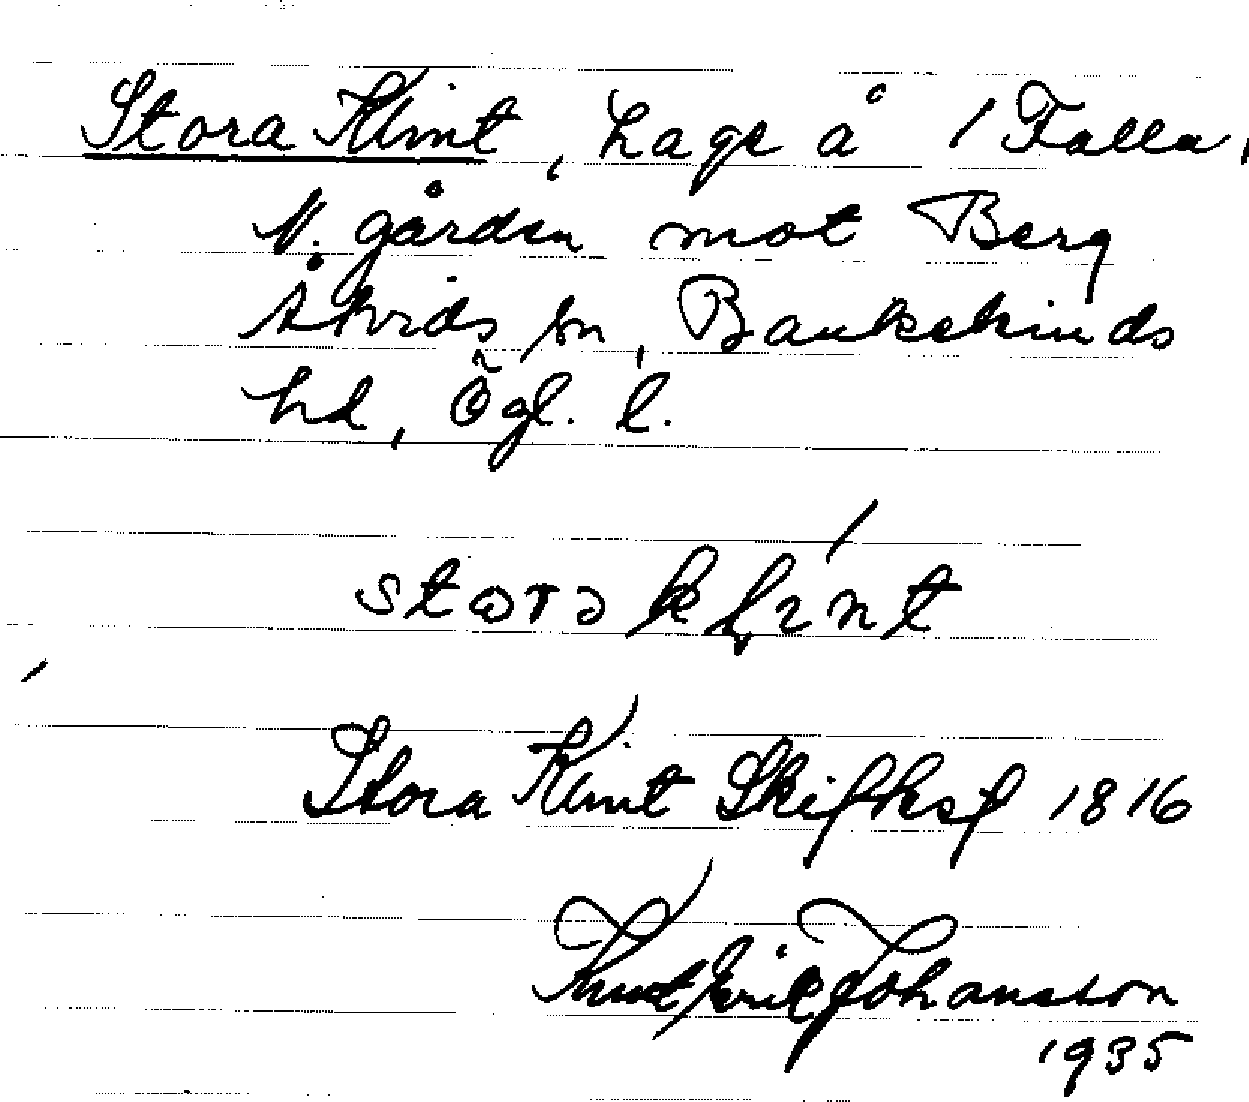 Stora Klint, Hage å 1 Falla,
V. gården mot Berg
Åtvids sn, Bankekinds
hd, Ögl. l.
Stora Klint Skifksf 1816
Knut Erik Johansson
1935